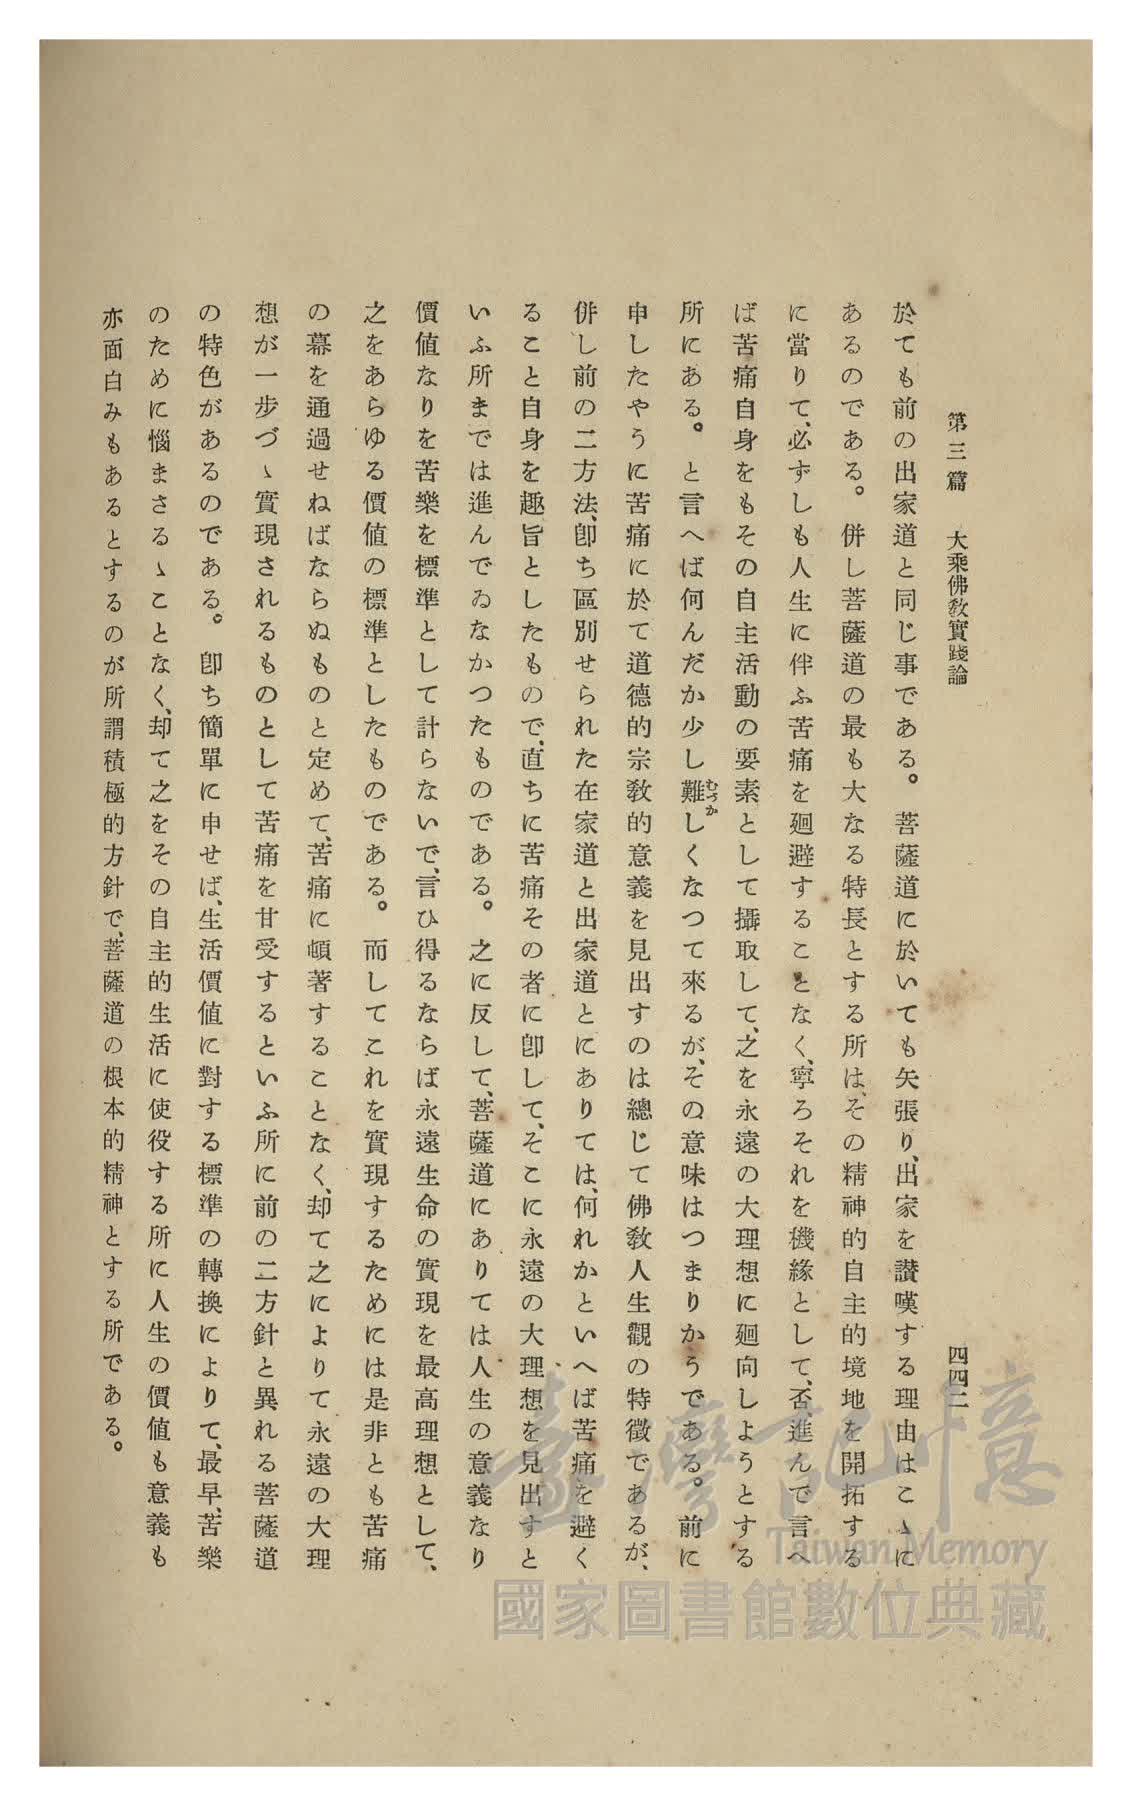 第三篇　大乘佛敎實踐論
四四二
於ても前の出家道と同じ事である。菩薩道に於いても矢張り、出家を讃嘆する理由はこゝに
あるのである。併し菩薩道の最も大なる特長とする所は、その精神的自主的境地を開拓する
に當りて、必ずしも人生に伴ふ苦痛を廻避することなく、寧ろそれを機緣として、否、進んで言へ
ば苦痛自身をもその自主活動の要素として攝取して、之を永遠の大理想に廻向しようとする
所にある。と言へば何んだか少し難しくなつて來るが、その意味はつまりかうである。前に
むづか
申したやうに苦痛に於て道德的宗敎的意義を見出すのは總じて佛敎人生觀の特徵であるが、
併し前の二方法、卽ち區別せられた在家道と出家道とにありては、何れかといへば苦痛を避く
ること自身を趣旨としたもので、直ちに苦痛その者に卽して、そこに永遠の大理想を見出すと
いふ所までは進んでゐなかつたものである。之に反して、菩薩道にありては人生の意義なり
價値なりを苦樂を標準として計らないで、言ひ得るならば永遠生命の實現を最高理想として、
之をあらゆる價値の標準としたものである。而してこれを實現するためには是非とも苦痛
の幕を通過せねばならぬものと定めて、苦痛に頓著することなく、却て之によりて永遠の大理
想が一步づゝ實現されるものとして苦痛を甘受するといふ所に前の二方針と異れる菩薩道
の特色があるのである。卽ち簡單に申せば、生活價値に對する標準の轉換によりて、最早、苦樂
のために惱まさるゝことなく、却て之をその自主的生活に使役する所に人生の價値も意義も
亦面白みもあるとするのが所謂積極的方針で、菩薩道の根本的精神とする所である。
臺灣記憶
Taiwan Memory
國家圖書館數位典藏